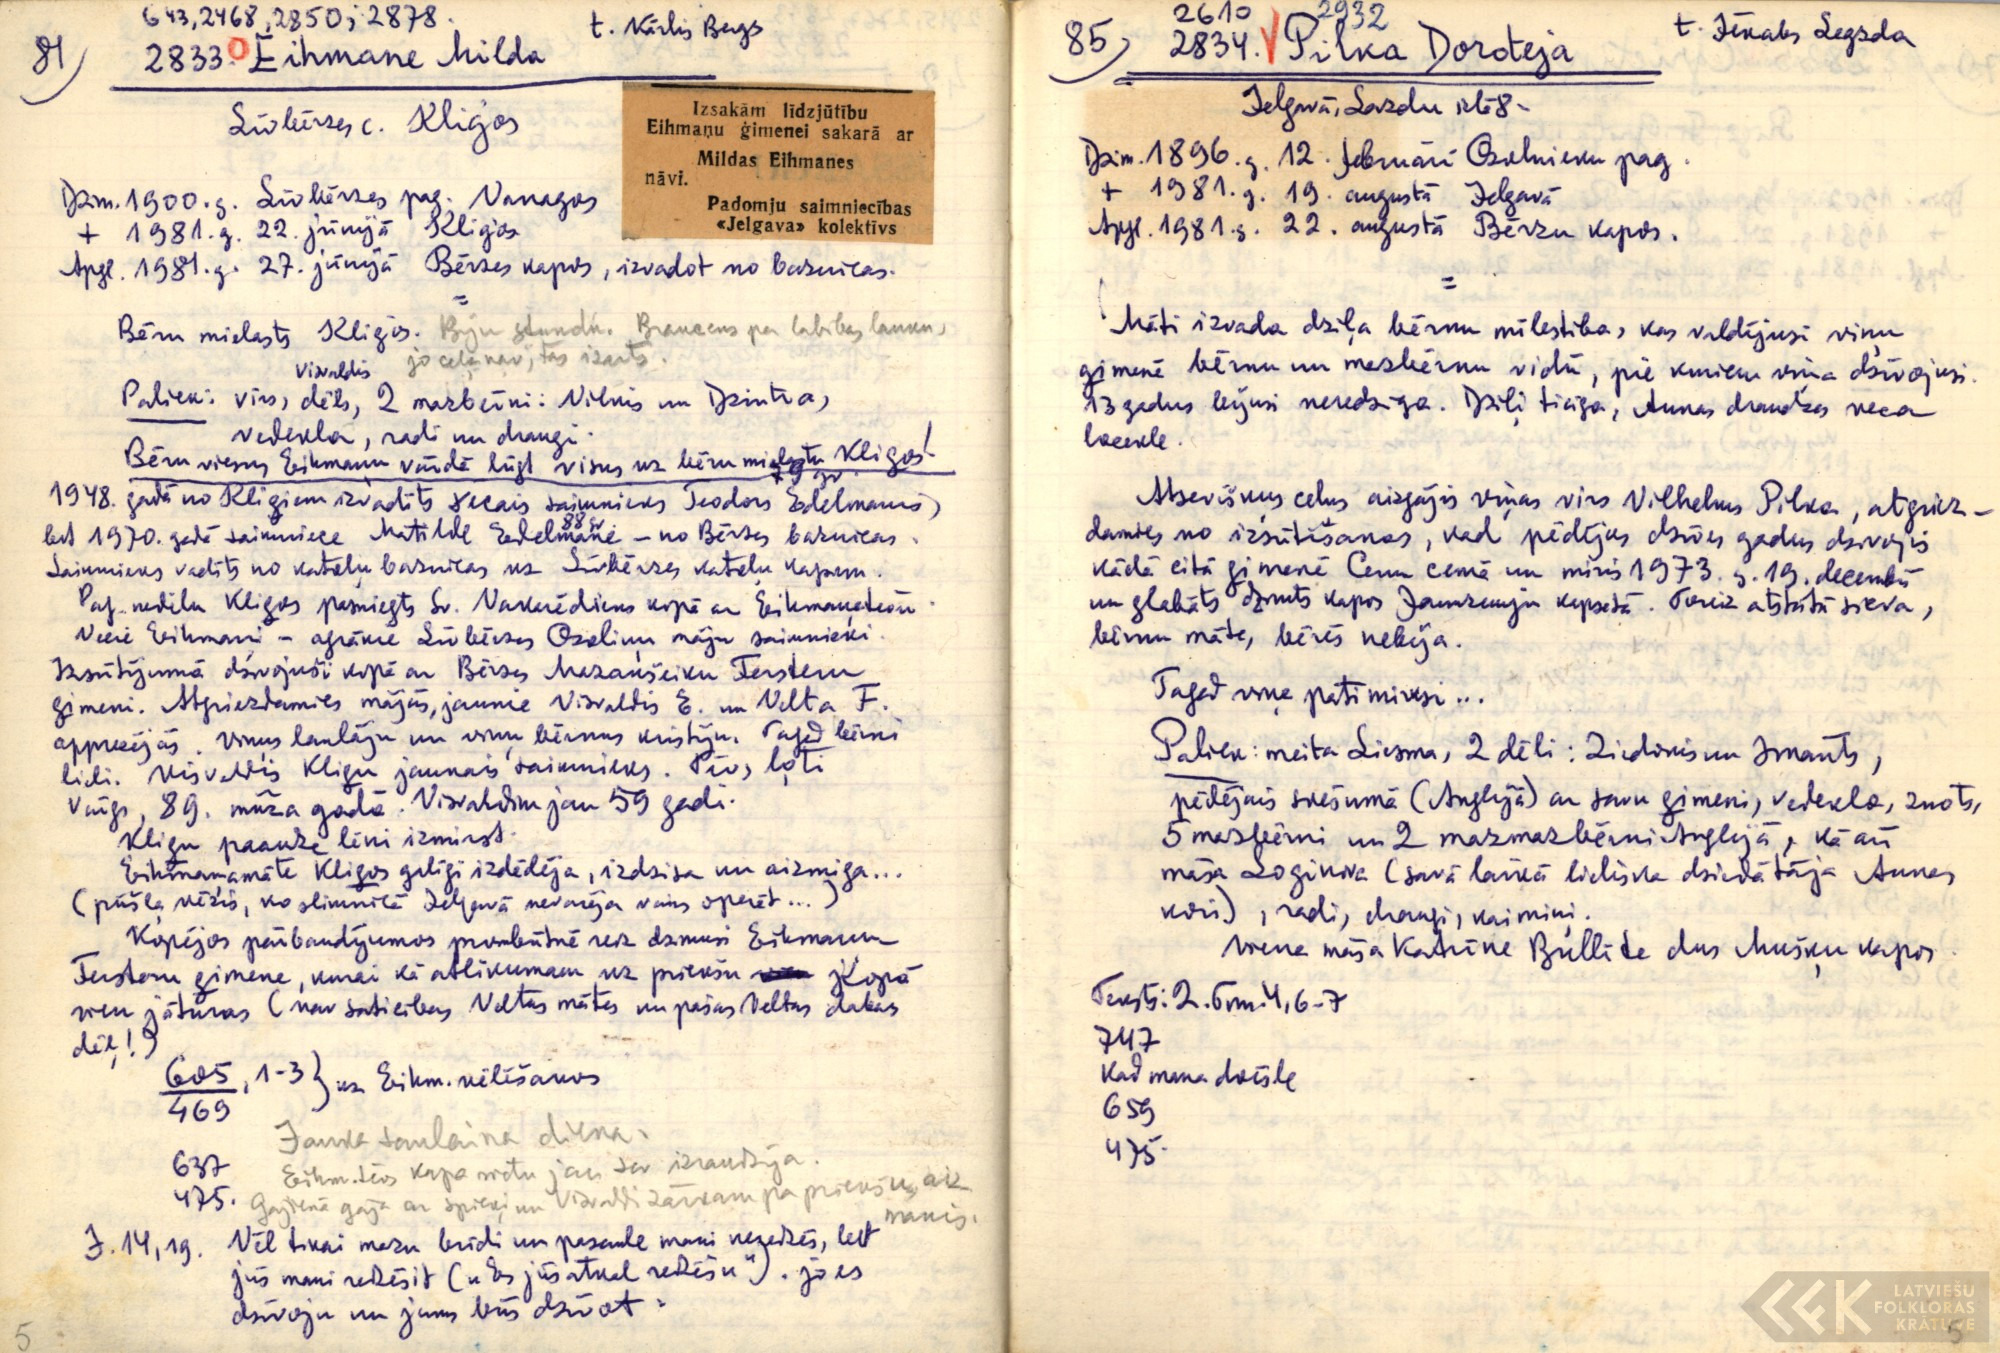 643, 2468, 2850; 2878.
81) 2833. Eihmane Milda
t. Kārlis Bergs
Līvbērzes c. Kligos
Izsakām līdzjūtību
Eihmaņu ģimenei sakarā ar
Mildas Eihmanes
nāvi.
Padomju saimniecības
«Jelgava» kolektīvs
Dzim. 1900. g. Līvbērzes pag. Vanagos
+ 1981. g. 22. jūnijā Kligos
Apgl. 1981. g. 27. jūnijā Bērzes kapos, izvadot no baznīcas.
=
Bēru mielasts Kligos. Biju stundu. Brauciens pa labības lauku,
jo ceļa nav, tas izarts.
Visvaldis
Paliek: vīrs, dēls, 2 mazbērni: Vilnis un Dzintra,
vedekla, radi un draugi.
Bēru viesus Eihmaņu vārdā lūgt visus uz bēru mielastu Kligos!
1948. gadā no Kligiem izvadīts vecais saimnieks Teodors Edelmanis,
bet 1970. gadā saimniece Matilde Edelmane – no Bērzes baznīcas.
88 g.
Saimnieks vadīts no katoļu baznīcas uz Līvbērzes katoļu kapiem.
Pag. nedēļu Kligos pasniegts Sv. Vakarēdiens kopā ar Eihmaņtēvu.
Vecie Eihmaņi – agrākie Līvbērzes Ozoliņu māju saimnieki.
Izsūtījumā dzīvojuši kopā ar Bērzes Mazaņšeiku Ferstern
ģimeni. Atgriezdamies mājās, jaunie Visvaldis E. un Velta F.
apprecējās. Viņus laulāju un viņu bērnus kristīju. Tagad bērni
lieli. Visvaldis Kligu jaunais saimnieks. Tēvs, ļoti
vārgs, 89. mūža gadā. Visvaldim jau 59 gadi.
Kligu paaudze lēni izmirst.
Eihmaņamāte Kligos gulēgi izdēdēja, izdzisa un aizmiga...
(pūšļa vēzis, ko slimnīcā Jelgavā nevarēja vairs operēt...)
Kopējos pārbaudījumos prombūtnē reiz dzimusi Eihmaņu
Ferstern ģimene, kurai kā atlikumam uz priekšu Kopā
vien jāturas (nav saticības Veltas mātes un pašas Veltas dabas
dēļ!)
605, 1-3 } uz Eihm. vēlēšanos
469
Jauka saulaina diena.
637
Eihm. tēvs kapa vietu jau sev izraudzīja.
475.
Gājienā gāja ar spieķi un Visvaldi zārkam pa priekšu, aiz
manis.
J. 14, 19. Vēl tikai mazu brīdi un pasaule mani neredzēs, bet
jūs mani redzēsit („Es jūs atkal redzēšu"). jo es
dzīvoju un jums būs dzīvot.
5
2610 2932
85) 2834. Pilka Doroteja
t. Jēkabs Legzda
Jelgavā, Lazdu ielā 8-
Dzim. 1896. g. 12. februārī Ozolnieku pag.
+ 1981. g. 19. augustā Jelgavā
Apgl. 1981. g. 22. augustā Bērzu kapos.
=
Māti izvada dziļa bērnu mīlestība, kas valdījusi viņu
ģimenē bērnu un mazbērnu vidū, pie kuriem viņa dzīvojusi.
13 gadus bijusi neredzīga. Dziļi ticīga, Annas draudzes veca
locekle.
Atsevišķus ceļus aizgājis viņas vīrs Vilhelms Pilka, atgriez-
damies no izsūtīšanas, kad pēdējos dzīves gadus dzīvojis
kādā citā ģimenē Cenu ciemā un miris 1973. g. 19. decembrī
un glabāts dzimts kapos Jaunzemju kapsētā. Toreiz atstātā sieva,
bērnu māte, bērēs nebija.
Tagad viņa pati mirusi...
Paliek: meita Liesma, 2 dēli: Ziedonis un Imants,
pēdējais svešumā (Anglijā) ar savu ģimeni, vedekla, znots,
5 mazbērni un 2 mazmazbērni Anglijā, kā arī
māsa Loginova (savā laikā lieliska dziedātāja Annas
korī), radi, draugi, kaimiņi.
Viena māsa Katrīne Bullīte dus Mušķu kapos.
Teksts: 2. Tim. 4, 6-7
747
Kad mana dvēsle
659
475.
LATVIEŠU
FOLKLORAS
KRĀTUVE
5